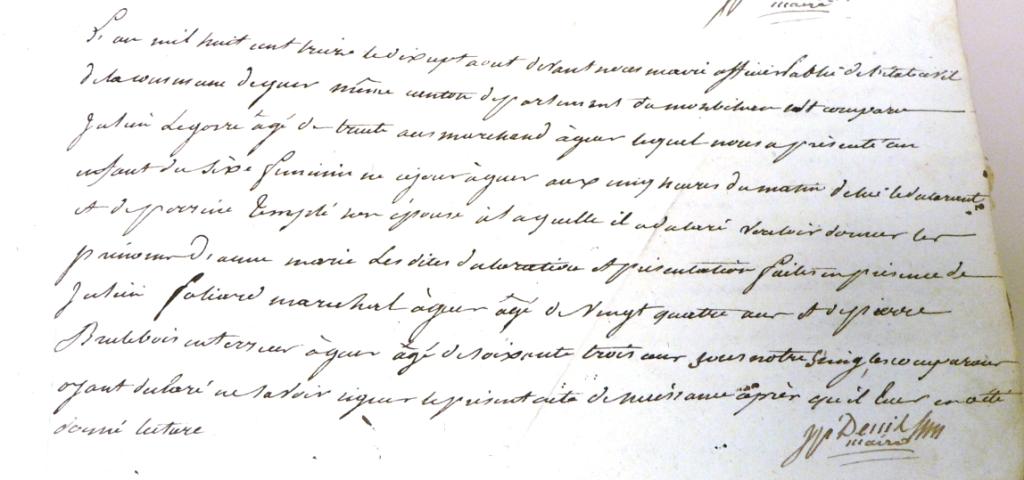 maire
L'an mil huit cent treize le dix sept aout devant nous maire officier Public de l'etat civil
de la commune de guer même canton departement du morbihan est comparu
Julien Legorre âgé de trente ans marchand à guer lequel nous a présenté un
enfant du sèxe feminin né ce jour à guer aux cinq heures du matin de lui declarant
et de perrine Templé son épouse à laquelle il a declaré vouloir donner les
prénoms d'anne marie Les dites declaration et présentation faites en présence de
Julien marechal à guer âgé de Vingt quatre ans et de pierre
Brulebois à guer âgé de soixante trois ans sous notre Seing les comparans
ayant declaré ne savoir signer le présent acte de naissance après qu'il leur en a été
donné lecture
Denis
maire